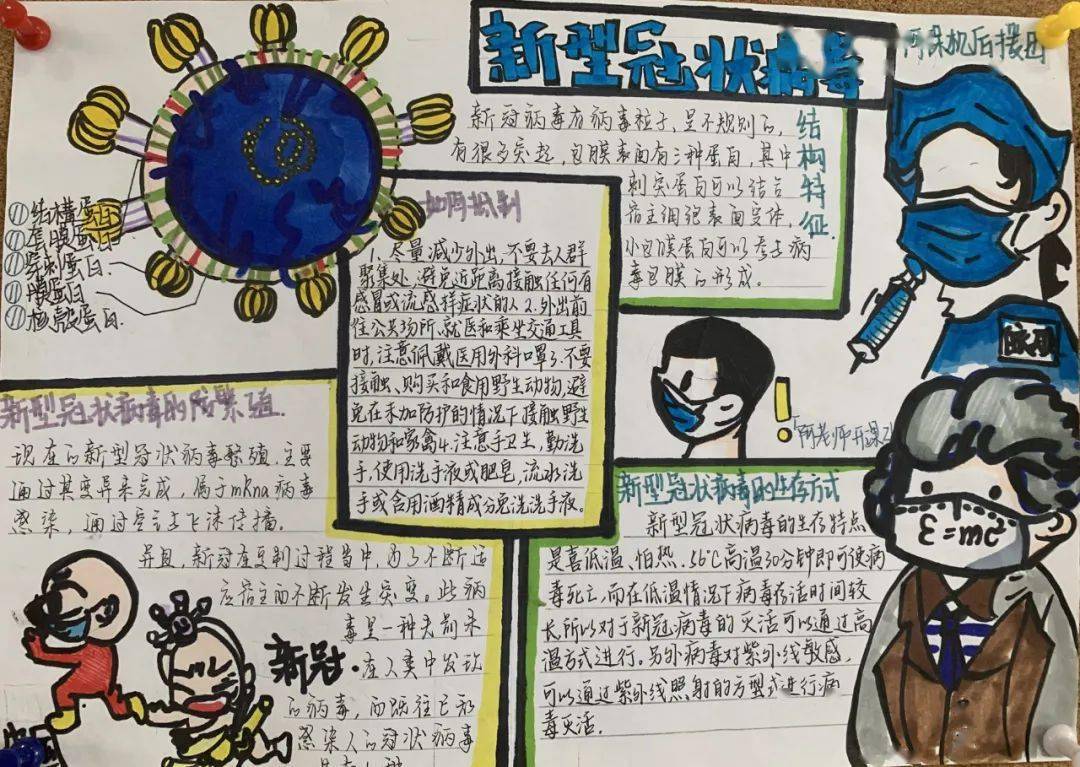 新型冠状病毒
阿呆机后援团
结构特征
新冠病毒有病毒粒子,呈不规则的,
有很多突起,包膜表面有三种蛋白,其中
刺突蛋白可以结合
宿主细胞表面受体,
小包膜蛋白可以参与病
毒包膜的形成。
结構蛋白
膜蛋白.
核殼蛋白.
如何抵制
1、尽量减少外出,不要去人群
聚集处,避免近距离接触任何有
感冒或流感样症状的人2.外出前
往公共场所、就医和乘坐交通工具
时,注意佩戴医用外科口罩3.不要
接触、购买和食用野生动物,避
免在未加防护的情况下接触野生
动物和家禽4.注意手卫生,勤洗
手,使用洗手液或肥皂,流水洗
手或含用酒精成分免洗洗手液。
新型冠状病毒的 繁殖.
现在的新型冠状病毒繁殖,主要
通过其变异来完成,属于mRna病毒
感染,通过 飞沫传播。
并且,新冠在复制过程当中,为了不断适
应宿主而不断发生突变。此病
毒是一种先前未
新冠.在人类中发现
的病毒,而既往已知
感染人的冠状病毒
!
新型冠状病毒的生存方式
新型冠状病毒的生存特点
是喜低温、怕热.56℃高温30分钟即可使病
毒死亡,而在低温情况下病毒存活时间较
长所以对于新冠病毒的灭活可以通过高
温方式进行。另外病毒对紫外线敏感,
可以通过紫外线照射的方型式进行病
毒灭活.
E=mc²